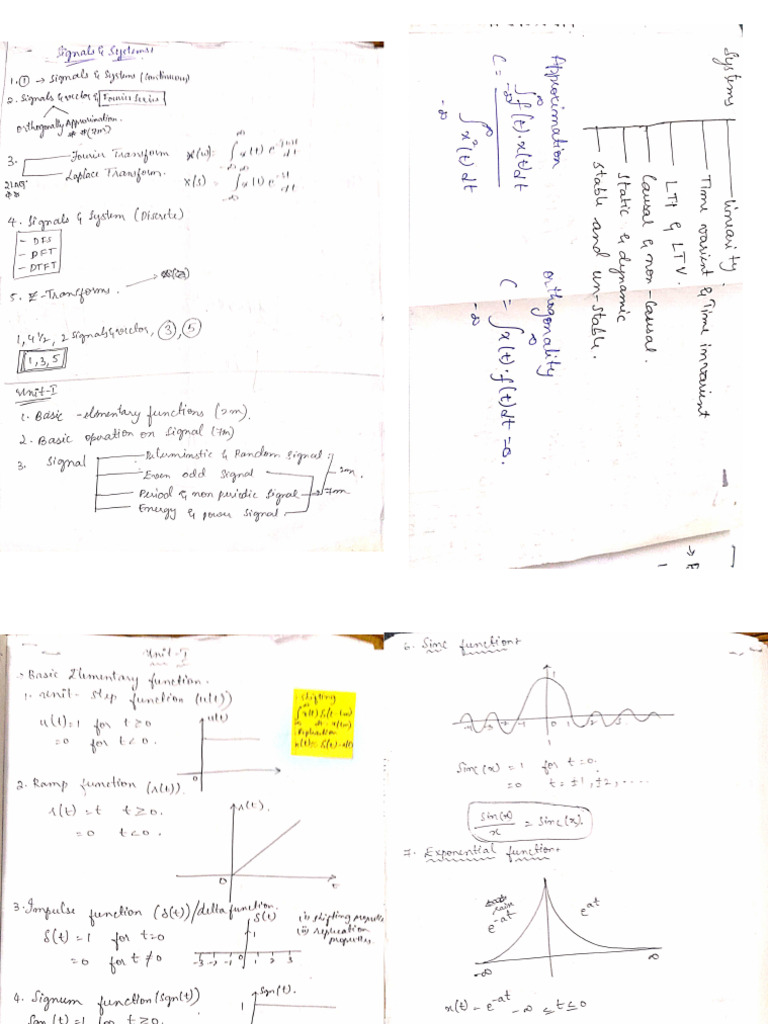 Signals & Systems:
1. ① → Signals & Systems (Continuous)
2. Signals & vector & Fourier Series
Orthogonally Approximation.
(7m)
3. Fourier Transform X(ω): ∫_{-∞}^{∞} x(t) e^{-jωt} dt
Laplace Transform. X(s) = ∫_{-∞}^{∞} x(t) e^{-st} dt
4. Signals & System (Discrete)
- DFS
- DFT
- DTFT
5. Z-Transforms.
1, 4 1/2, 2 Signals & vector, ③, ⑤
1, 3, 5
Unit-I
1. Basic - elementary functions (2m).
2. Basic operation on Signal (7m)
3. Signal
Deterministic & Random Signal
Even odd Signal
Period & non periodic Signal
Energy & power Signal
2m.
7m
Systems
Linearity.
Time varient & Time invarient
LTI & LTV.
Causal & non-Causal.
Static & dynamic
Stable and un-stable.
Approximation
C = ∫_{-∞}^{∞} f(t).x(t)dt
∫_{-∞}^{∞} x²(t)dt
orthogonality
C = ∫_{-∞}^{∞} x(t).f(t)dt = 0.
Unit-I
Basic Elementary function.
1. Unit-Step function (u(t))
u(t)=1 for t≥0
=0 for t<0.
u(t)
0
Shifting
2. Ramp function (r(t)).
r(t) = t t≥0.
=0 t<0.
r(t).
0
t
3. Impulse function (δ(t))/delta function.
δ(t)=1 for t=0
=0 for t≠0
δ(t)
1
-3 -2 -1 0 1 2 3
(i) shifting
(ii) replication
properties.
4. Signum function (Sgn(t))
Sgn(t)=1 for t>0.
Sgn(t).
1
6. Sinc function
1
-1 0 1 2 3
1
Sinc(x) = 1 for t=0.
=0 t=±1, ±2, ....
Sin(x)/x = Sinc(x).
7. Exponential function
e^{-at}
e^{at}
-∞
∞
x(t) - e^{-at} -∞ ≤ t ≤ 0